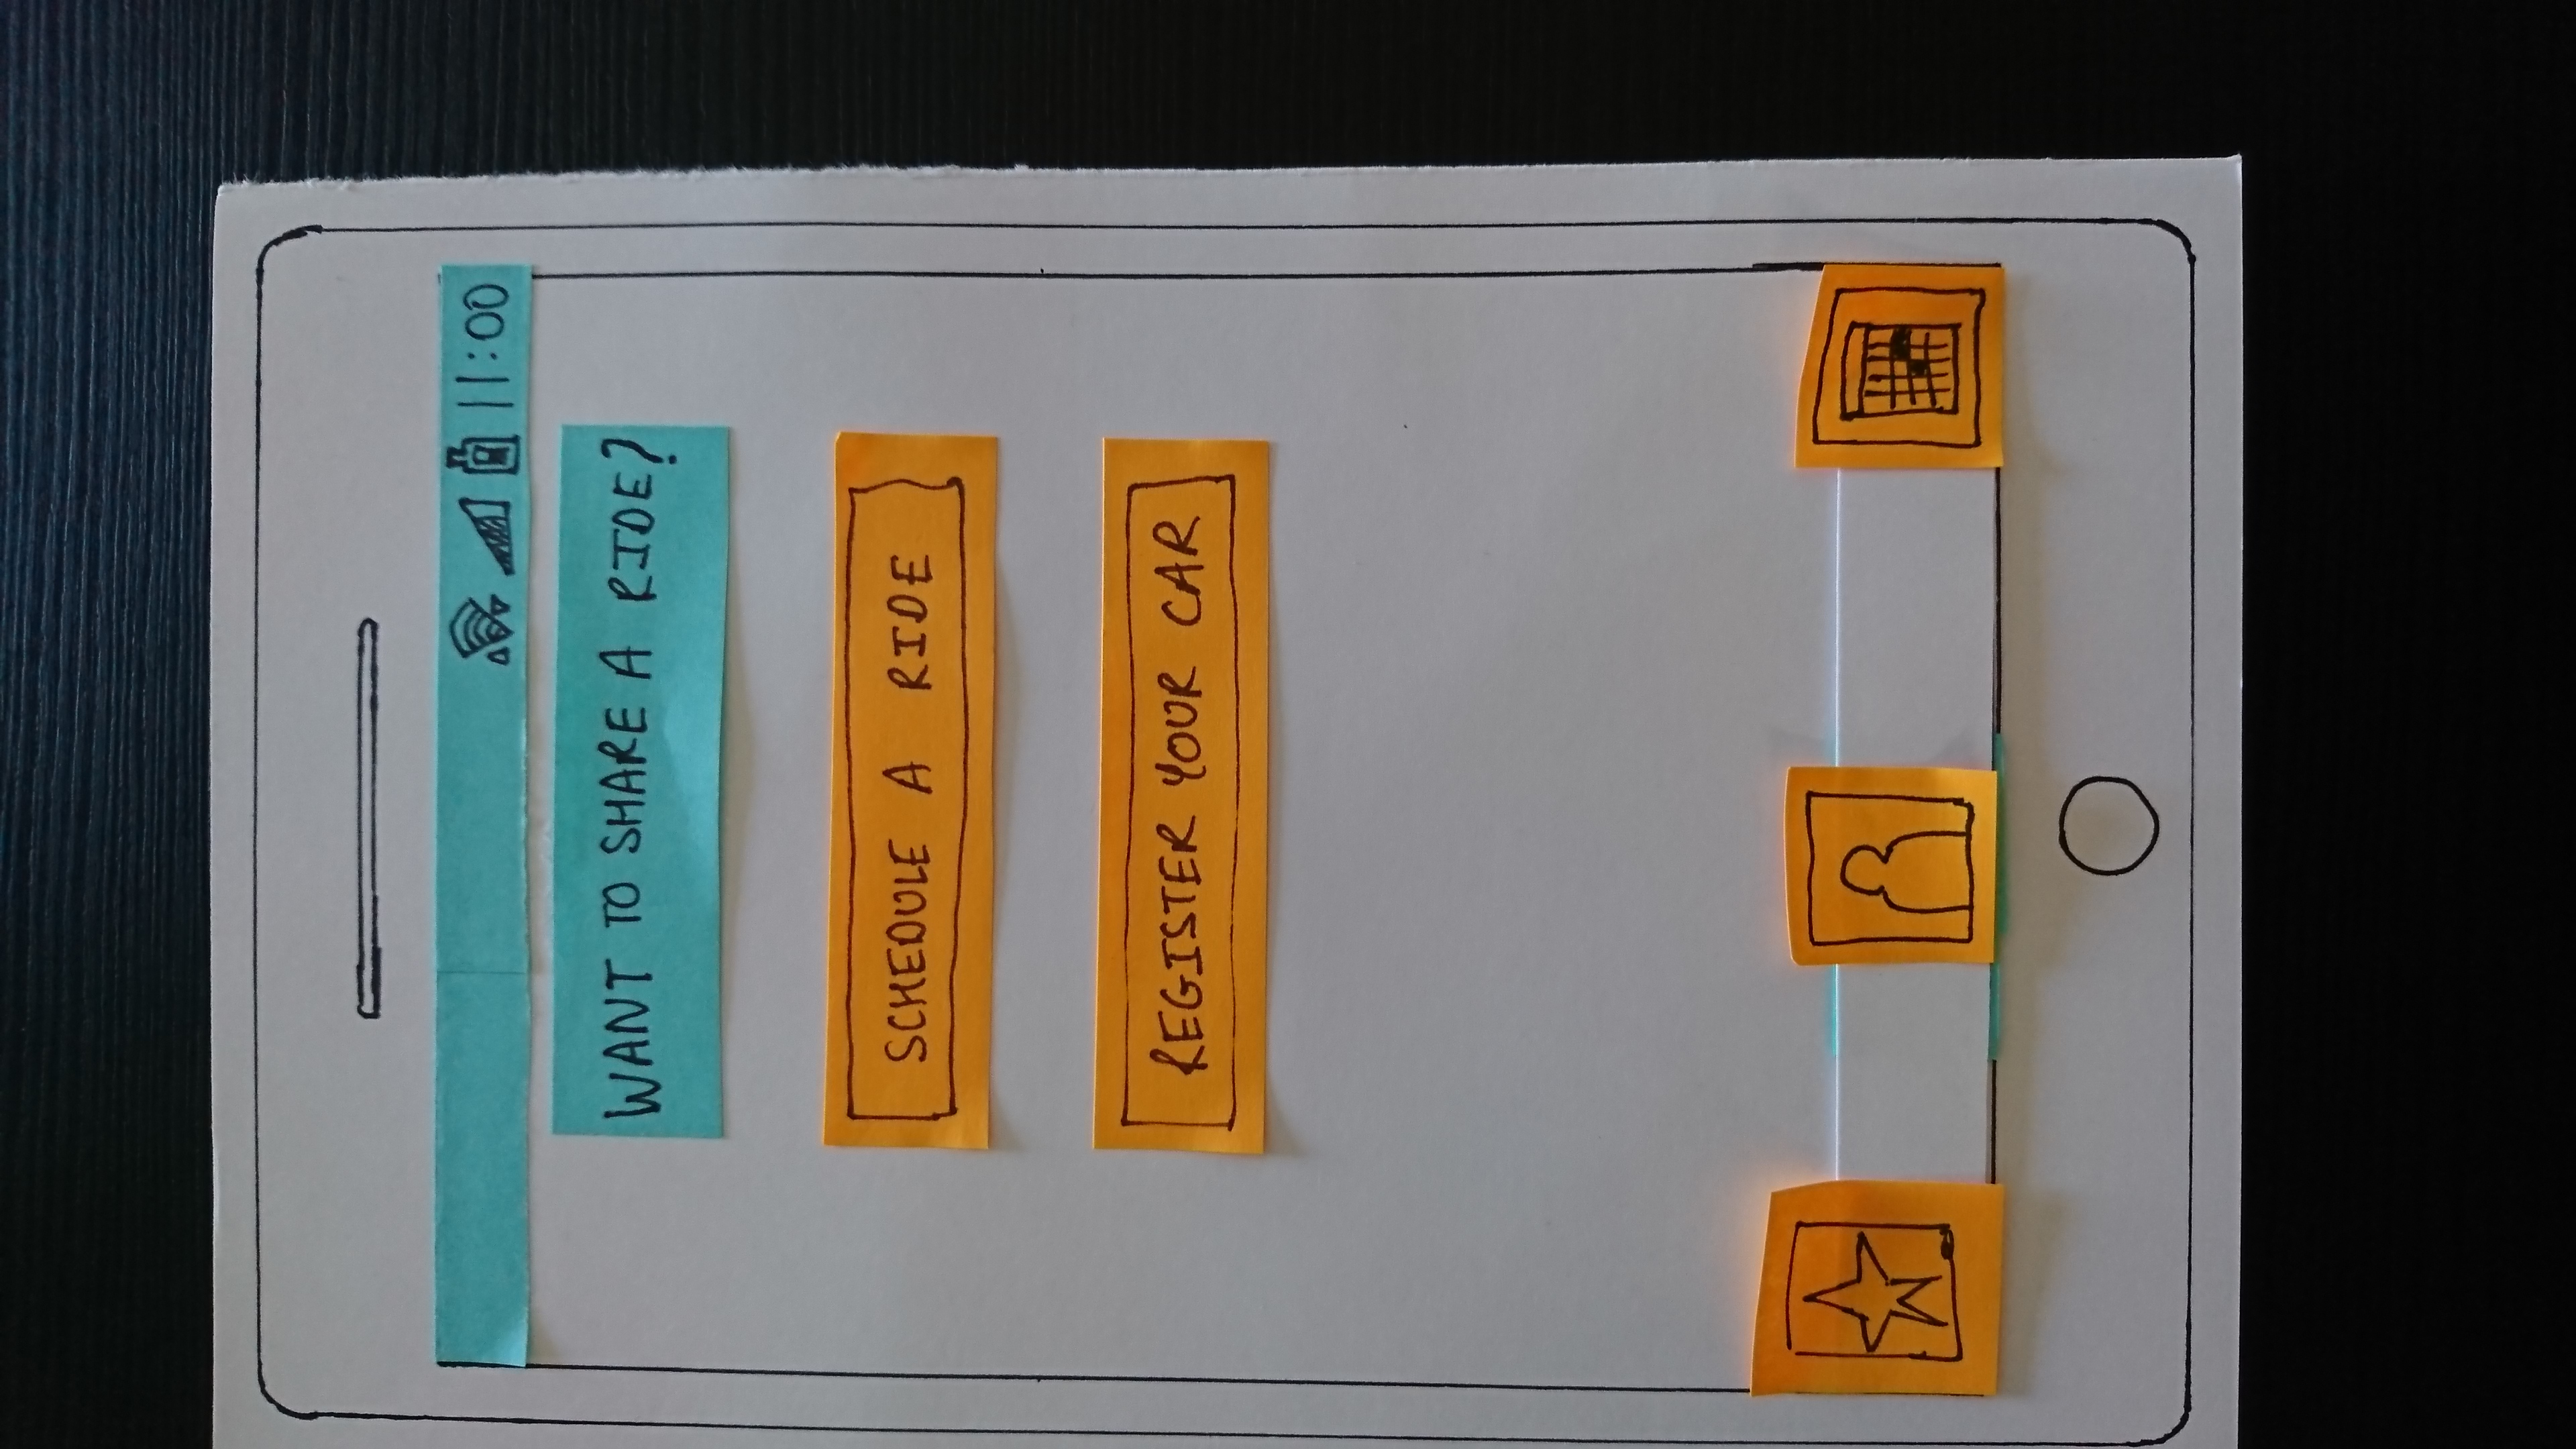 11:00
WANT TO SHARE A RIDE?
SCHEDULE A RIDE
REGISTER YOUR CAR